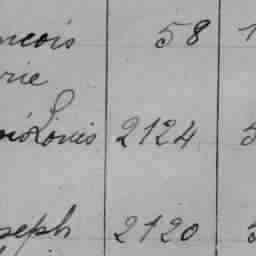 ncois 58
rie
Louis 2124
seph 2120